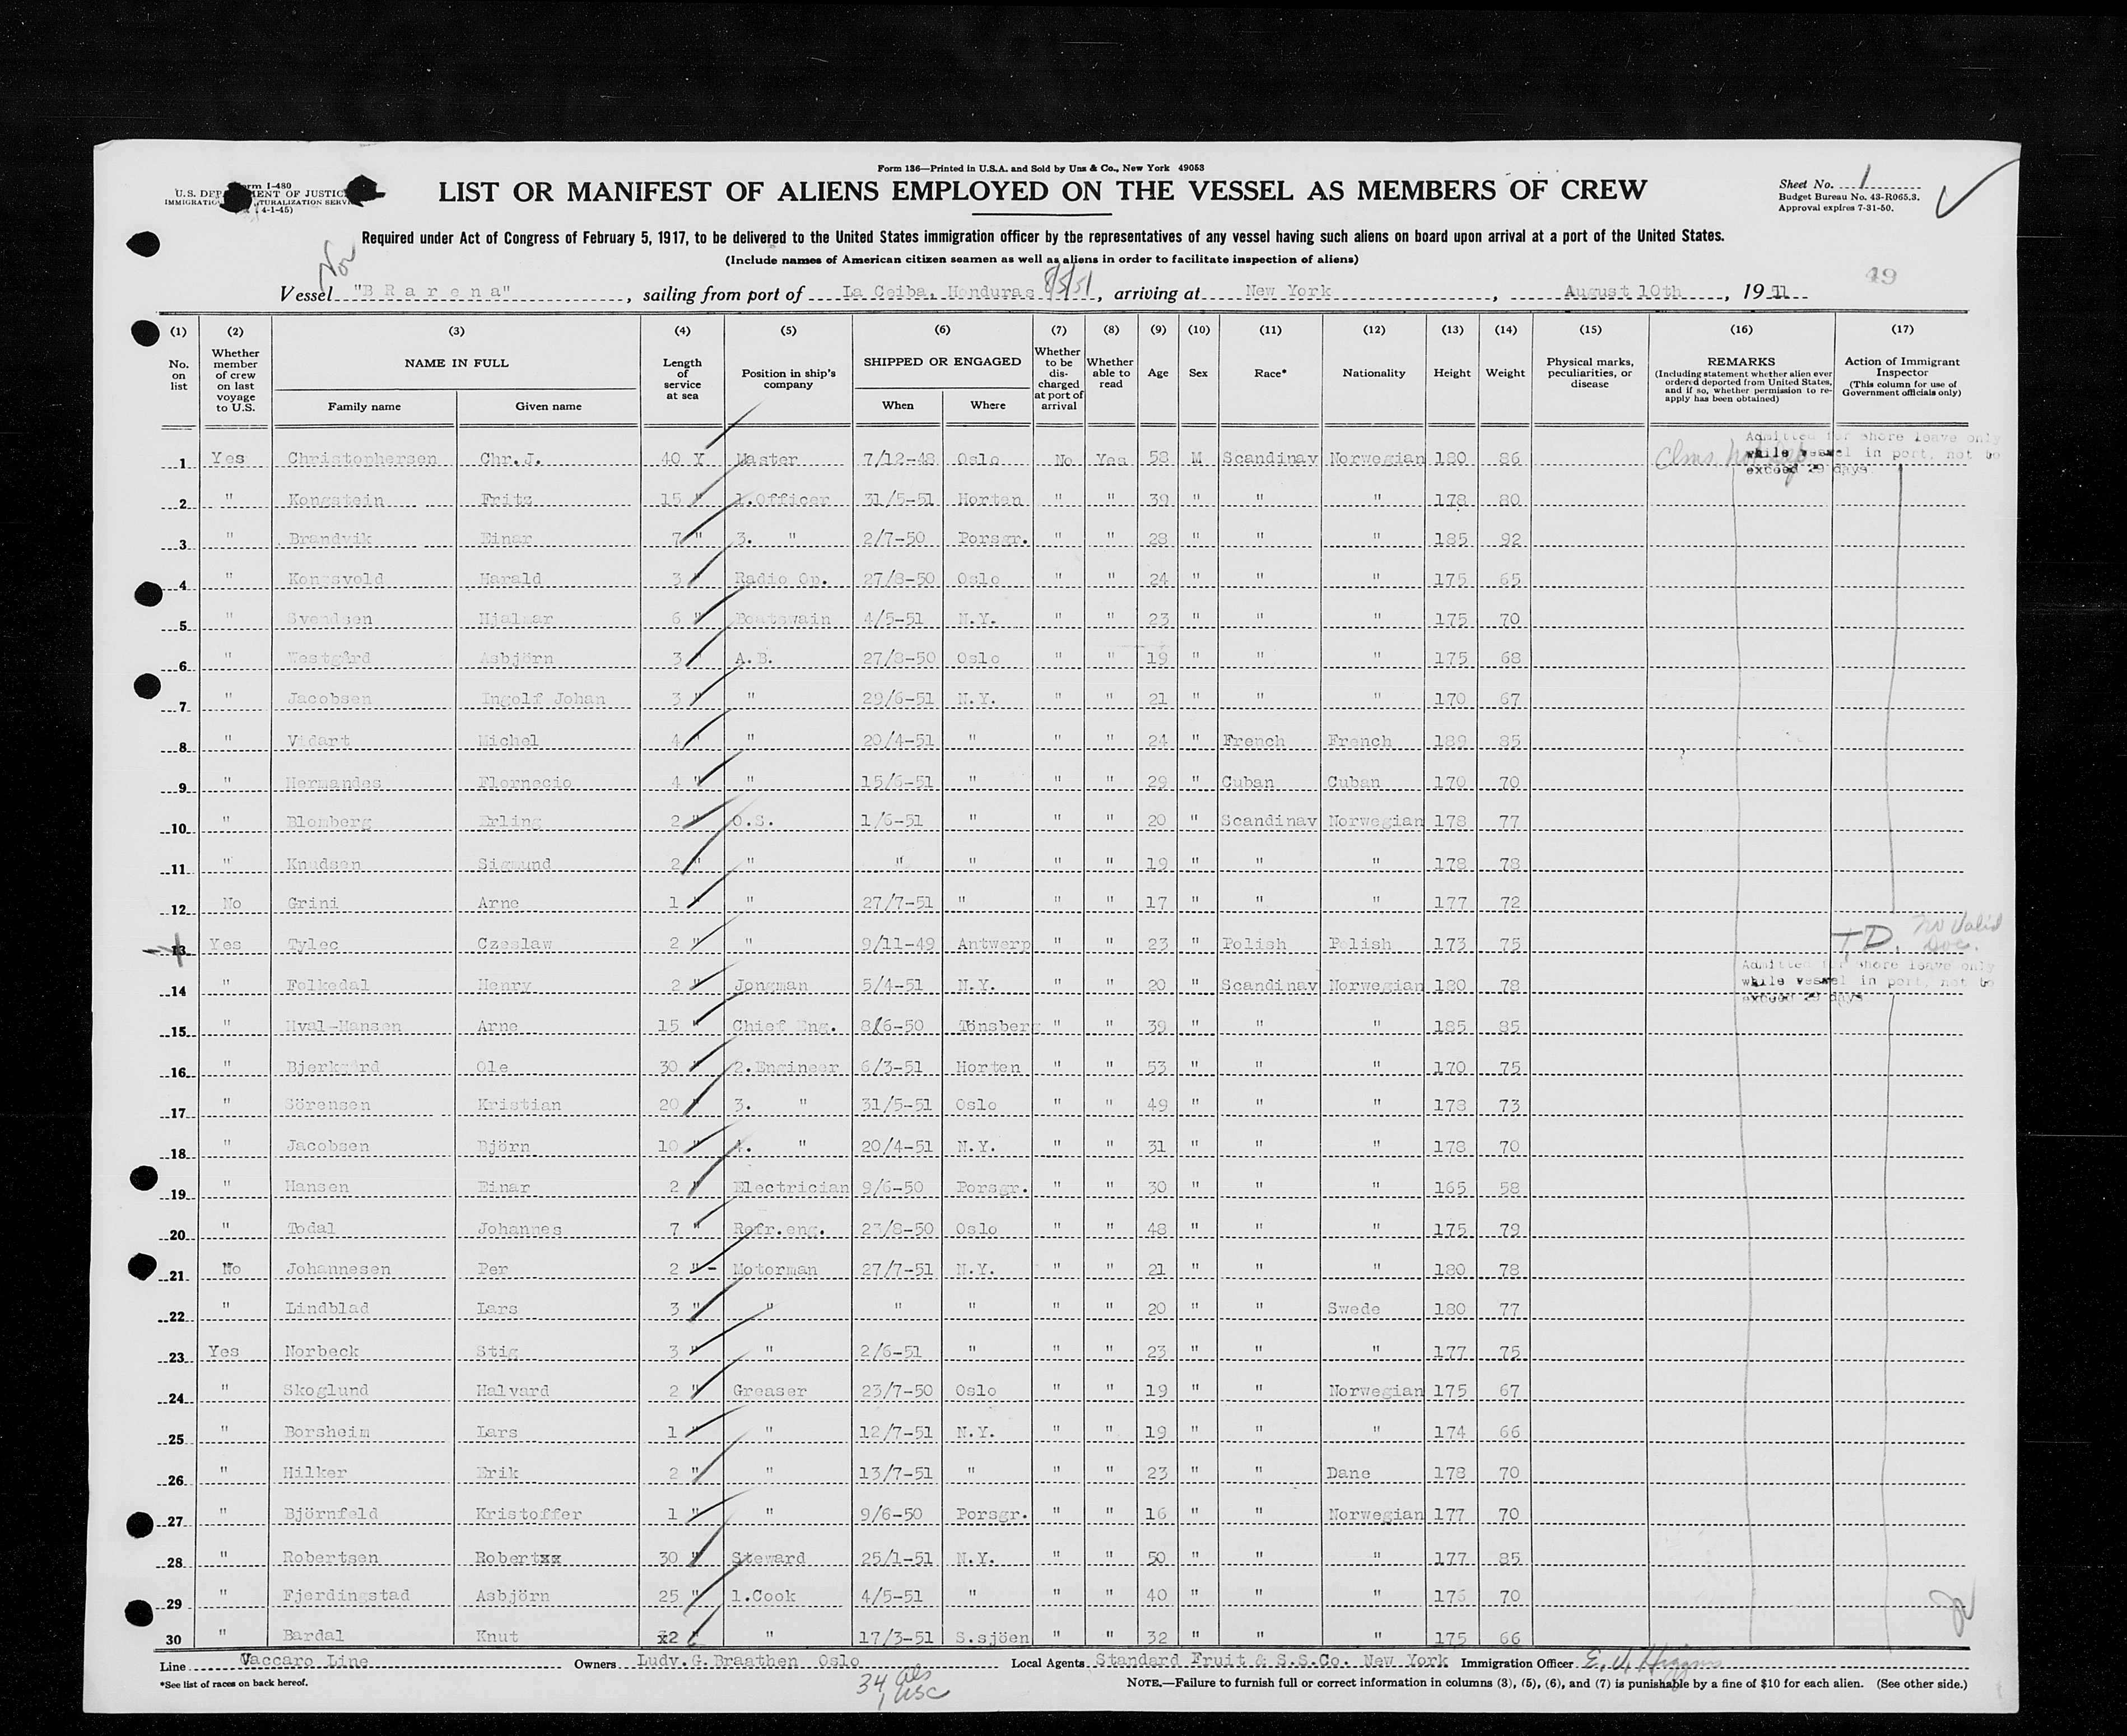 Form 136—Printed in U.S.A. and Sold by Uns & Co., New York 49053
Form I-480
U.S. DEPARTMENT OF JUSTICE
IMMIGRATION NATURALIZATION SERVICE
4-1-45)
LIST OR MANIFEST OF ALIENS EMPLOYED ON THE VESSEL AS MEMBERS OF CREW
Sheet No. 1
Budget Bureau No. 43-R065.3.
Approval expires 7-31-50.
Required under Act of Congress of February 5, 1917, to be delivered to the United States immigration officer by the representatives of any vessel having such aliens on board upon arrival at a port of the United States.
(Include names of American citizen seamen as well as aliens in order to facilitate inspection of aliens)
Nor
49
Vessel "B R a r e n a", sailing from port of La Ceiba, Honduras 8/5/51, arriving at New York, August 10th, 1951
(1) (2) (3) (4) (5) (6) (7) (8) (9) (10) (11) (12) (13) (14) (15) (16) (17)
No. on list
Whether member of crew on last voyage to U.S.
NAME IN FULL
Family name
Given name
Length of service at sea
Position in ship's company
SHIPPED OR ENGAGED
When
Where
Whether to be discharged at port of arrival
Whether able to read
Age
Sex
Race*
Nationality
Height
Weight
Physical marks, peculiarities, or disease
REMARKS
(Including statement whether alien ever ordered deported from United States, and if so, whether permission to reapply has been obtained)
Action of Immigrant Inspector
(This column for use of Government officials only)
Admitted for shore leave only
while vessel in port, not to
exceed 29 days
1 Yes Christophersen Chr. J. 40 Y Master 7/12-48 Oslo No Yes 58 M Scandinav Norwegian 180 86
2 " Kongstein Fritz 15 " 1.Officer 31/5-51 Horten " " 39 " " " 178 80
3 " Brandvik Einar 7 " 3. " 2/7-50 Porsgr. " " 28 " " " 185 92
4 " Kongsvold Harald 3 " Radio Op. 27/8-50 Oslo " " 24 " " " 175 65
5 " Svendsen Hjalmar 6 " Boatswain 4/5-51 N.Y. " " 23 " " " 175 70
6 " Westgård Asbjörn 3 " A.B. 27/8-50 Oslo " " 19 " " " 175 68
7 " Jacobsen Ingolf Johan 3 " " 29/6-51 N.Y. " " 21 " " " 170 67
8 " Vidart Michel 4 " " 20/4-51 " " " 24 " French French 189 85
9 " Hermandes Flornecio 4 " " 15/6-51 " " " 29 " Cuban Cuban 170 70
10 " Blomberg Erling 2 " O.S. 1/6-51 " " " 20 " Scandinav Norwegian 178 77
11 " Knudsen Sigmund 2 " " " " " " 19 " " " 178 78
12 No Grini Arne 1 " " 27/7-51 " " " 17 " " " 177 72
13 Yes Tylec Czeslaw 2 " " 9/11-49 Antwerp " " 23 " Polish Polish 173 75 T D. No Valid Doc.
Admitted for shore leave only
while vessel in port, not to
exceed 29 days
14 " Folkedal Henry 2 " Jongman 5/4-51 N.Y. " " 20 " Scandinav Norwegian 180 78
15 " Hval-Hansen Arne 15 " Chief Eng. 8/6-50 Tönsberg " " 39 " " " 185 85
16 " Bjerkgård Ole 30 " 2.Engineer 6/3-51 Horten " " 53 " " " 170 75
17 " Sörensen Kristian 20 " 3. " 31/5-51 Oslo " " 49 " " " 178 73
18 " Jacobsen Björn 10 " 4. " 20/4-51 N.Y. " " 31 " " " 178 70
19 " Hansen Einar 2 " Electrician 9/6-50 Porsgr. " " 30 " " " 165 58
20 " Todal Johannes 7 " Refr.eng. 23/8-50 Oslo " " 48 " " " 175 79
21 No Johannesen Per 2 " - Motorman 27/7-51 N.Y. " " 21 " " " 180 78
22 " Lindblad Lars 3 " " " " " " 20 " " Swede 180 77
23 Yes Norbeck Stig 3 " " 2/6-51 " " " 23 " " " 177 75
24 " Skoglund Halvard 2 " Greaser 23/7-50 Oslo " " 19 " " Norwegian 175 67
25 " Borsheim Lars 1 " " 12/7-51 N.Y. " " 19 " " " 174 66
26 " Hilker Erik 2 " " 13/7-51 " " " 23 " " Dane 178 70
27 " Björnfeld Kristoffer 1 " " 9/6-50 Porsgr. " " 16 " " Norwegian 177 70
28 " Robertsen Robertxx 30 " Steward 25/1-51 N.Y. " " 50 " " " 177 85
29 " Fjerdingstad Asbjörn 25 " 1.Cook 4/5-51 " " " 40 " " " 176 70
30 " Bardal Knut x2 " " 17/3-51 S.sjöen " " 32 " " " 175 66
Line Vaccaro Line Owners Ludv. G. Braathen Oslo Local Agents Standard Fruit & S.S.Co. New York Immigration Officer E. V. Higgins
*See list of races on back hereof.
34 als
1 USC
NOTE.—Failure to furnish full or correct information in columns (3), (5), (6), and (7) is punishable by a fine of $10 for each alien. (See other side.)